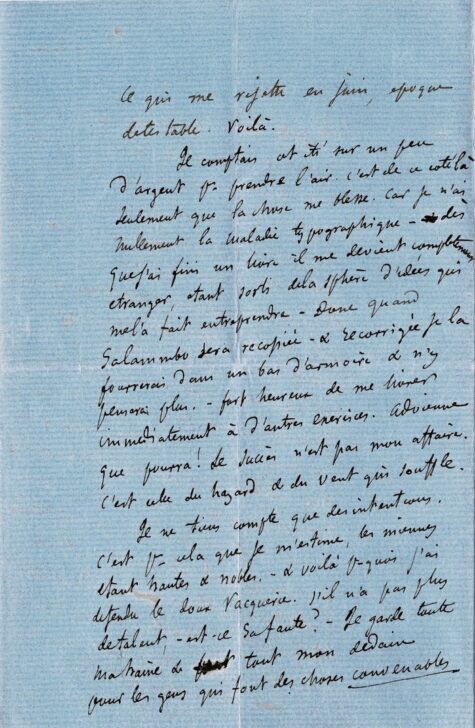 ce qui me rejette en juin, epoque
detestable. Voilà.
Je comptais cet été sur un peu
d'argent pr prendre l'air. c'est de ce coté là
seulement que la chose me blesse. Car je n'ai
nullement la maladie typographique - dès
que j'ai fini un livre il me devient completement
etranger, etant sorti de la sphère d'idees qui
me l'a fait entreprendre - Donc quand
Salammbô sera recopiée - & recorrigée je la
fourrerai dans un bas d'armoire & n'y
penserai plus. - fort heureux de me livrer
immédiatement à d'autres exercices. Advienne
que pourra! Le succès n'est pas mon affaire.
C'est celle du hazard & du vent qui souffle.
Je ne tiens compte que des intentions.
C'est pr cela que je m'estime, les miennes
etant hautes & nobles. - & voilà pr quoi j'ai
defendu le doux Vacquerie. s'il n'a pas plus
de talent, - est-ce sa faute? - Je garde toute
ma haine & tout mon dedain
pour les gens qui font des choses convenables